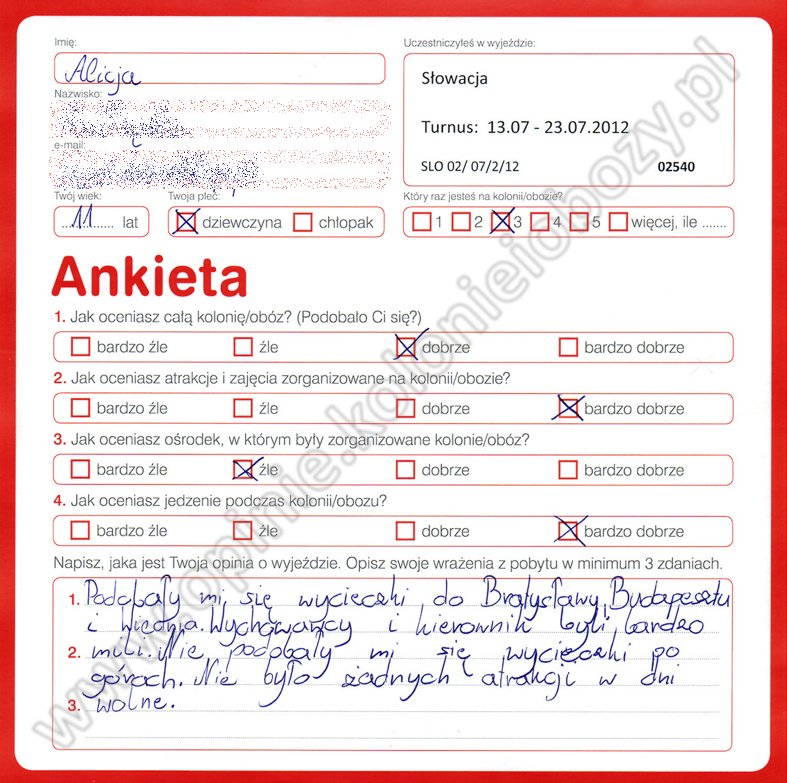 Imię:
Uczestniczyłeś w wyjeździe:
Alicja
Słowacja
Nazwisko:
Turnus: 13.07 - 23.07.2012
e-mail:
SLO 02/ 07/2/12 02540
Twój wiek:
Twoja płeć:
Który raz jesteś na kolonii/obozie?
11 lat
dziewczyna chłopak
1 2 3 4 5 więcej, ile .......
Ankieta
1. Jak oceniasz całą kolonię/obóz? (Podobało Ci się?)
bardzo źle źle dobrze bardzo dobrze
2. Jak oceniasz atrakcje i zajęcia zorganizowane na kolonii/obozie?
bardzo źle źle dobrze bardzo dobrze
3. Jak oceniasz ośrodek, w którym były zorganizowane kolonie/obóz?
bardzo źle źle dobrze bardzo dobrze
4. Jak oceniasz jedzenie podczas kolonii/obozu?
bardzo źle źle dobrze bardzo dobrze
Napisz, jaka jest Twoja opinia o wyjeździe. Opisz swoje wrażenia z pobytu w minimum 3 zdaniach.
1. Podobały mi się wycieczki do Bratysławy, Budapesztu
i Wiednia. Wychowawcy i kierownik byli bardzo
2. mili. Nie podobały mi się wycieczki po
górach. Nie było żadnych atrakcji w dni
3. wolne.
www.opinie.kolonieiobozy.pl